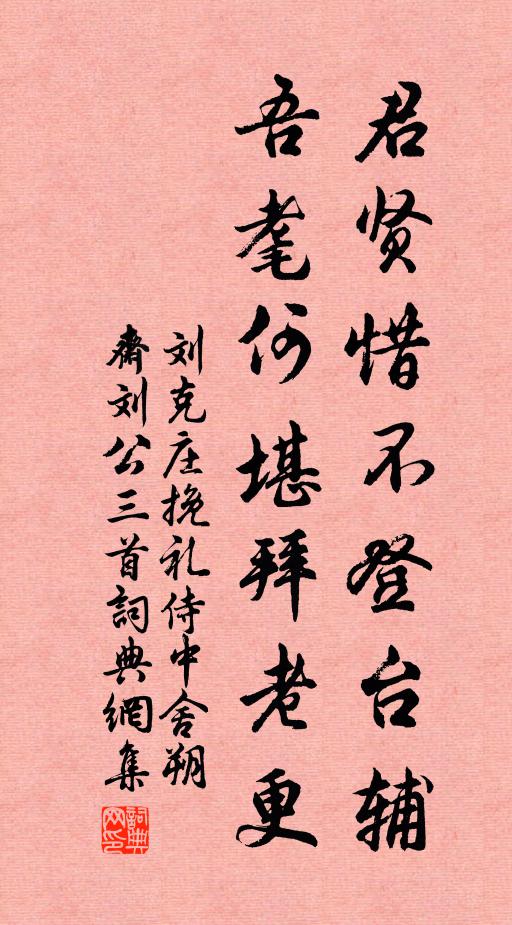 君贤惜不登台辅
吾耄何堪拜老更
刘克庄挽礼侍中舍朔
斋刘公三首詞典網集
詞典网印